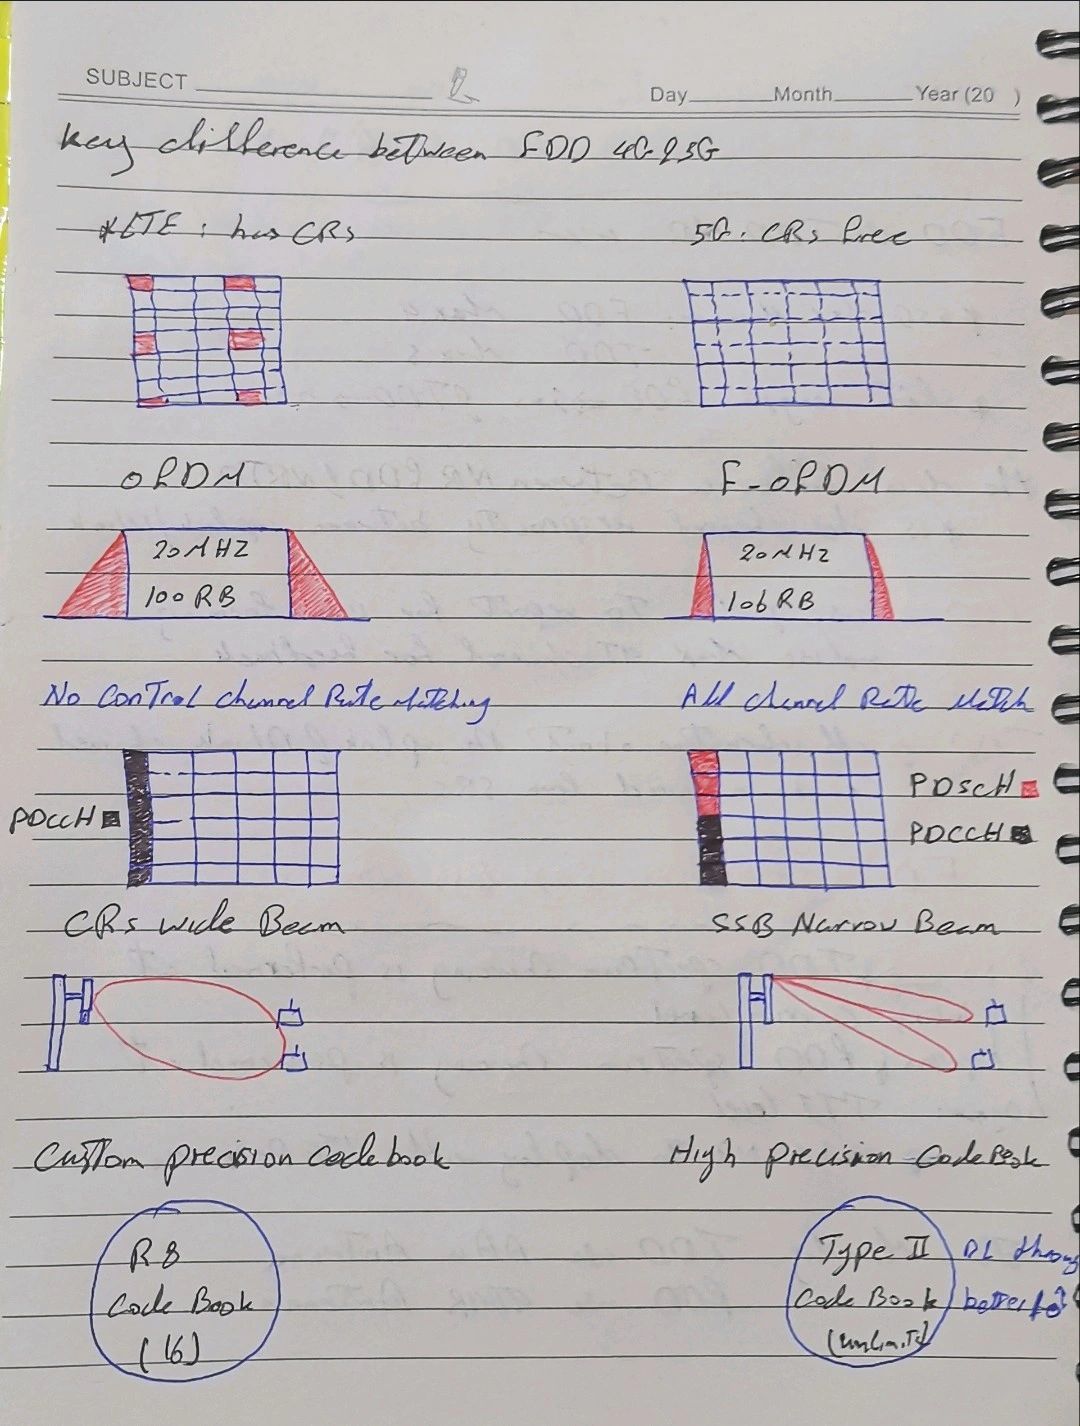 SUBJECT
2
Day Month Year (20 )
Key difference between FDD 4G & 5G
*LTE : has CRs
5G: CRs free
OFDM
F-OFDM
20MHZ
100 RB
20MHZ
106 RB
No Control channel Rate Matching
All channel Rate Match
PDCCH
PDSCH
PDCCH
CRs wide Beam
SSB Narrow Beam
Custom precision codebook
High Precision Code Book
R8
Code Book
(16)
Type II
Code Book
(unlimited)
DL
better